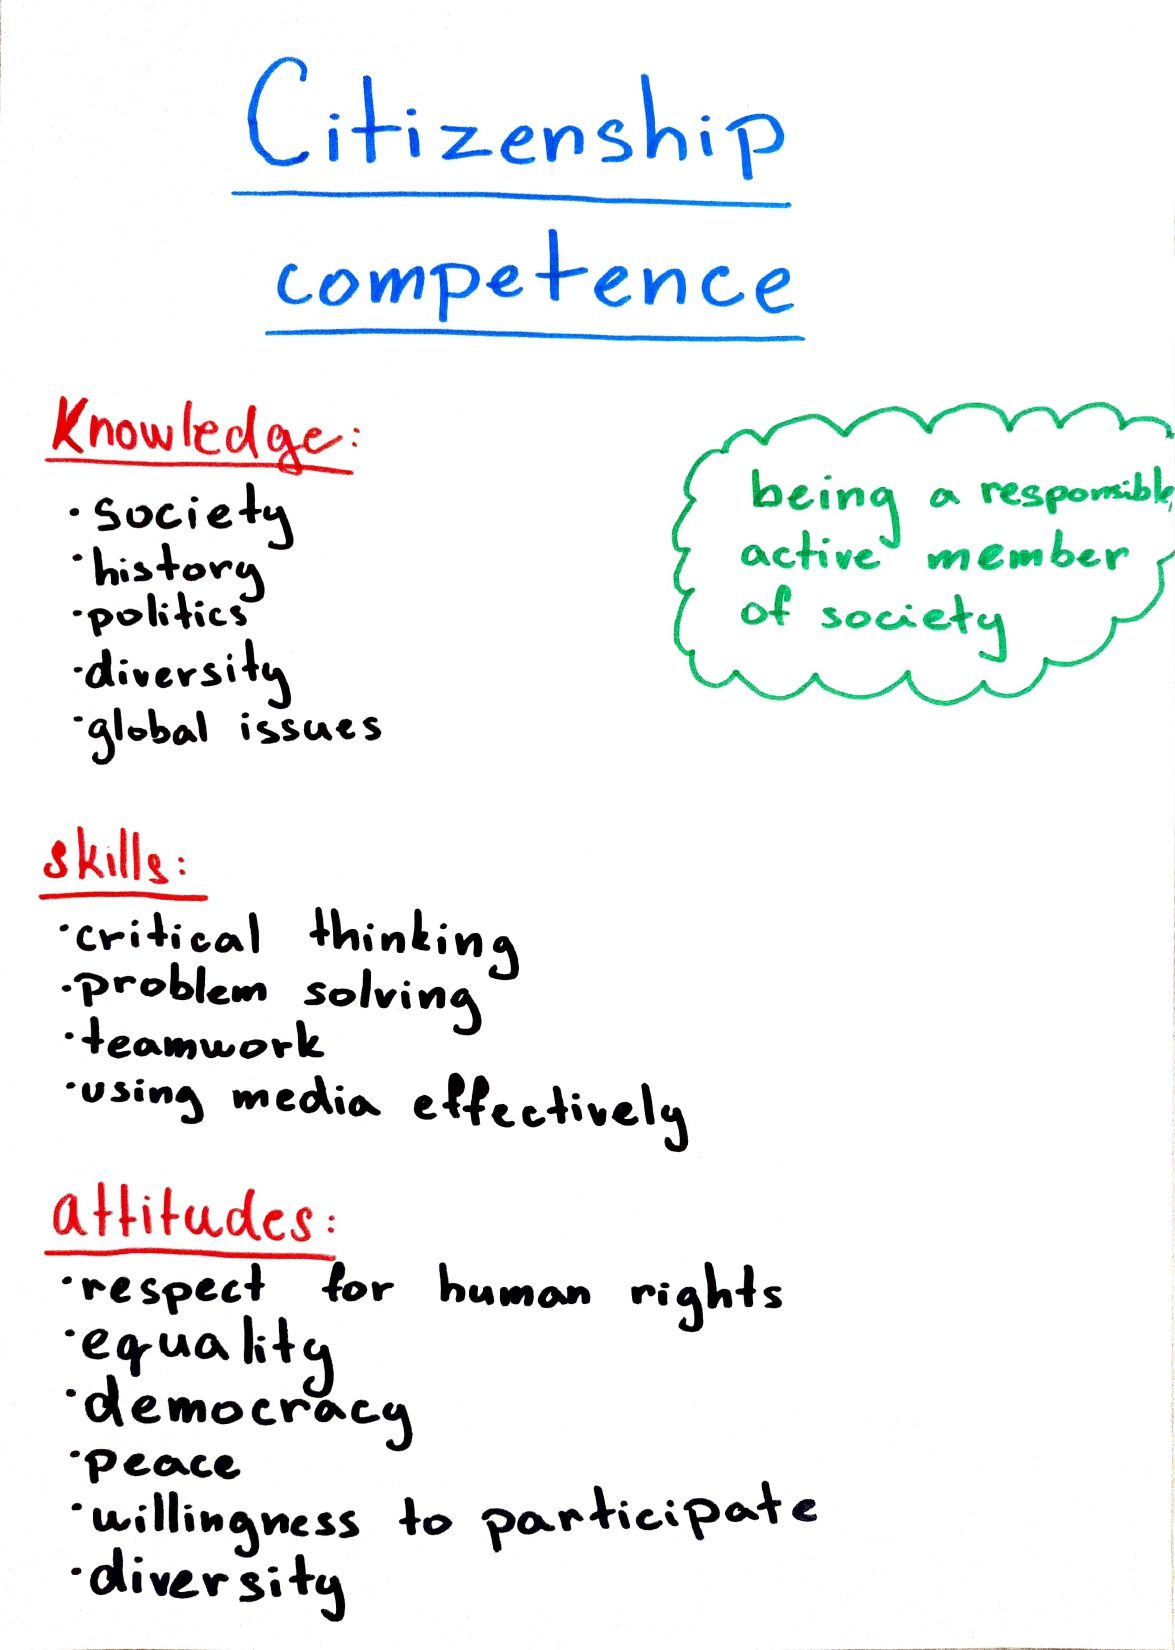 Citizenship
competence
Knowledge:
being a responsible,
active member
of society
· society
· history
· politics
· diversity
· global issues
skills:
· critical thinking
· problem solving
· teamwork
· using media effectively
attitudes:
· respect for human rights
· equality
· democracy
· peace
· willingness to participate
· diversity